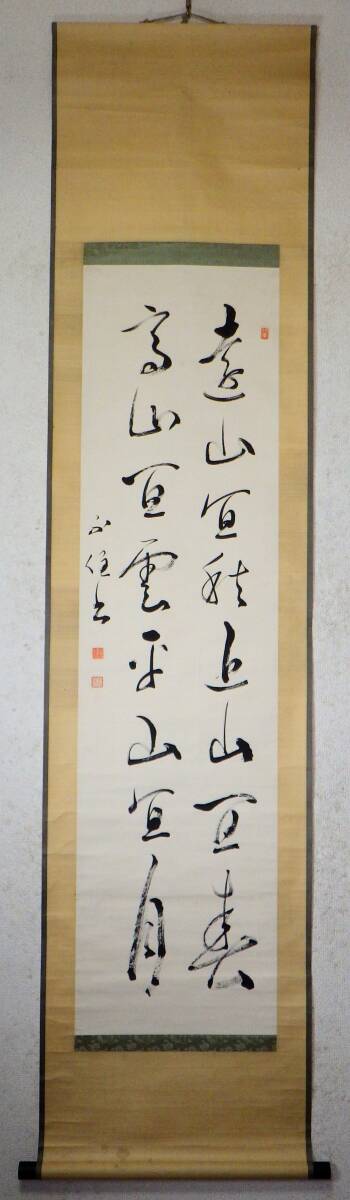 遠山宜秋近山宜春
高山宜雲平山宜月
不住書